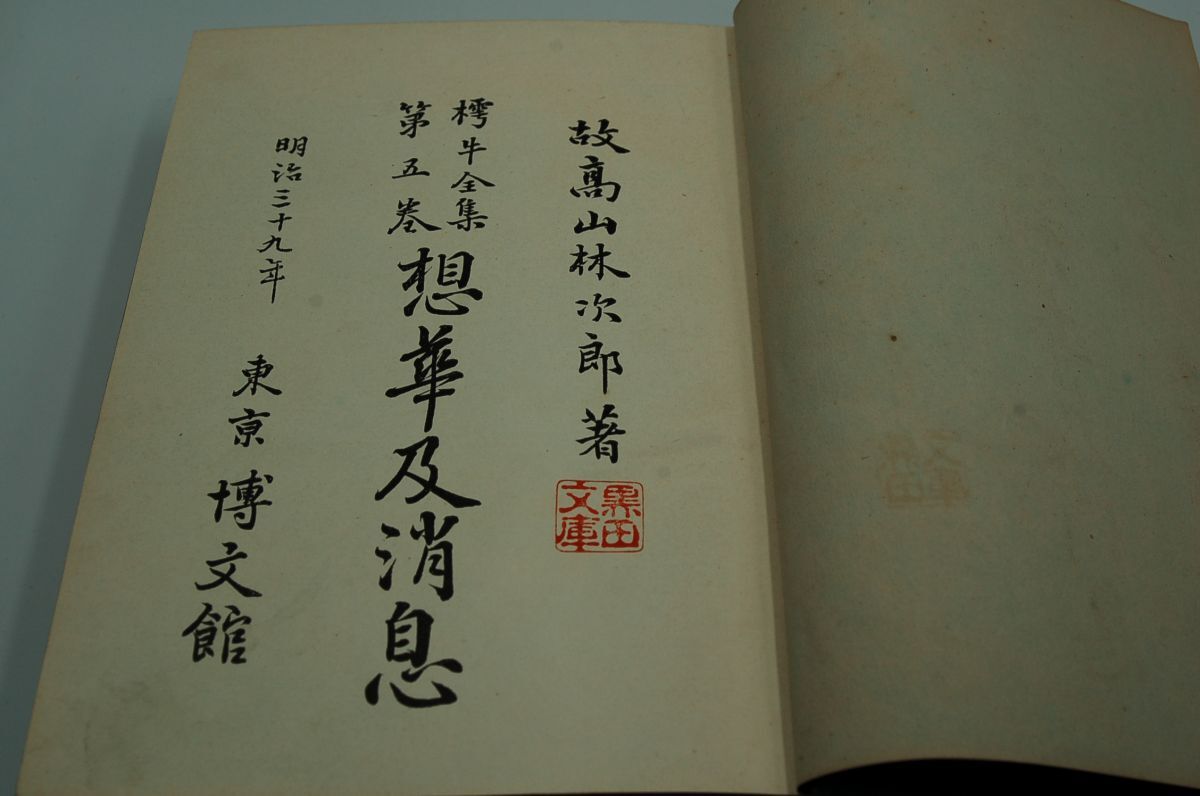 故高山林次郎著
黒田
文庫
樗牛全集
第五卷
想華及消息
明治三十九年
東京 博文館